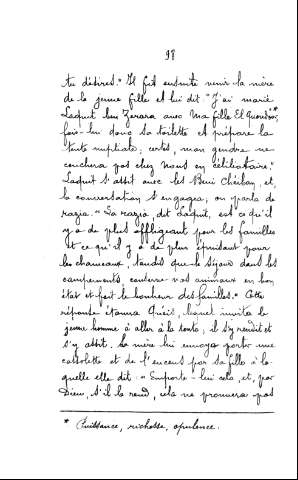 98
tu désires." Il fit ensuite venir la mère
de la jeune fille et lui dit "J'ai marié
Laquit ben Zerara avec ma fille El Guendouz*,
fais-lui donc sa toilette et prépare la
tente nuptiale; certes, mon gendre ne
couchera pas chez nous en célibataire."
Laquit s'assit avec les Beni Cheïban, et,
la conversation s'engagea; on parla de
razia. "La razia, dit Laquit, est ce qu'il
y a de plus affligeant pour les familles
et ce qu'il y a de plus épuisant pour
les chameaux, tandis que le séjour dans les
campements, conserve vos animaux en bon
état et fait le bonheur des familles." Cette
réponse étonna Queïs, lequel invita le
jeune homme à aller à la tente; il s'y rendit et
s'y assit. La mère lui envoya porter une
cassolette et de l'encens par sa fille à la-
quelle elle dit: "Emporte-lui cela, et, par
Dieu, s'il le rend, cela ne prouvera pas
* Puissance, richesse, opulence.